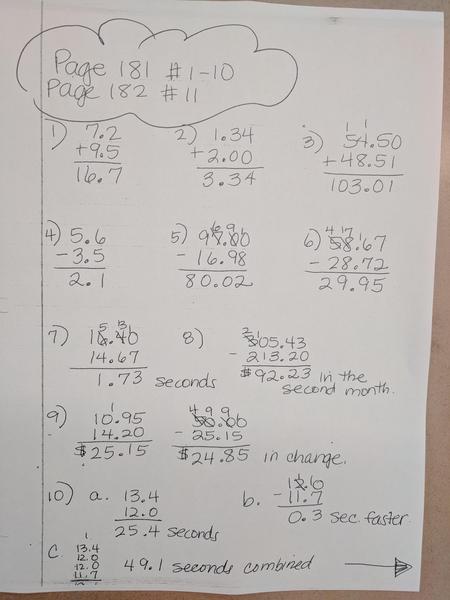 Page 181 #1-10
Page 182 #11
1) 7.2
+9.5
16.7
2) 1.34
+2.00
3.34
1 1
3) 54.50
+48.51
103.01
4) 5.6
-3.5
2.1
6 9 1
5) 97.00
- 16.98
80.02
4 17 1
6) 58.67
- 28.72
29.95
5 13 1
7) 16.40
14.67
1.73 seconds
2 1
8) 305.43
- 213.20
$92.23 in the
second month.
1
9) 10.95
14.20
$25.15
4 9 9
50.00
- 25.15
$24.85 in change.
10) a. 13.4
12.0
25.4 seconds
b. 12.0
- 11.7
0.3 sec. faster
1
c. 13.4
12.0
12.0
11.7
49.1 seconds combined